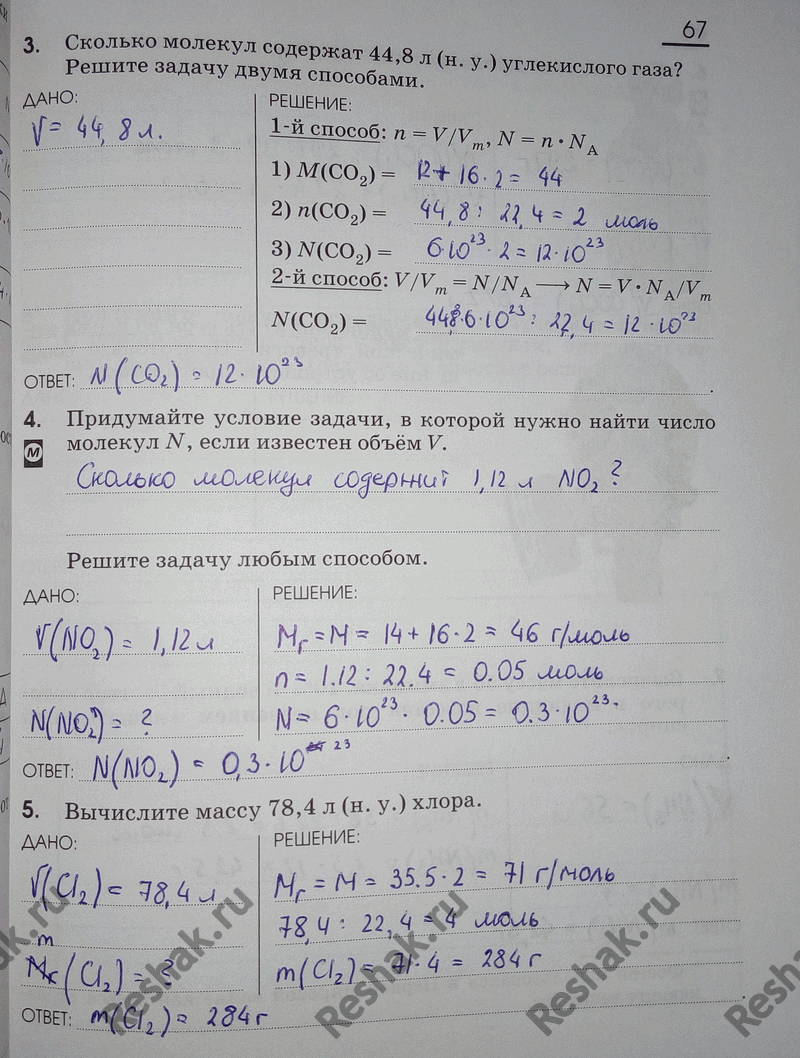 67
3. Сколько молекул содержат 44,8 л (н. у.) углекислого газа?
Решите задачу двумя способами.
ДАНО:
V = 44,8 л.
РЕШЕНИЕ:
1-й способ: n = V/Vm, N = n · NA
1) M(CO2) = 12 + 16 · 2 = 44
2) n(CO2) = 44,8 : 22,4 = 2 моль
3) N(CO2) = 6·10²³ · 2 = 12·10²³
2-й способ: V/Vm = N/NA → N = V · NA/Vm
N(CO2) = 448·6·10²³ : 22,4 = 12 · 10²³
ОТВЕТ: N(CO2) = 12 · 10²³
4. Придумайте условие задачи, в которой нужно найти число
М молекул N, если известен объём V.
Сколько молекул содержит 1,12 л NO2?
Решите задачу любым способом.
ДАНО:
V(NO2) = 1,12 л
N(NO2) = ?
РЕШЕНИЕ:
Mr = M = 14 + 16·2 = 46 г/моль
n = 1.12 : 22.4 = 0.05 моль
N = 6·10²³ · 0.05 = 0.3·10²³.
ОТВЕТ: N(NO2) = 0,3·10²³
5. Вычислите массу 78,4 л (н. у.) хлора.
ДАНО:
V(Cl2) = 78,4 л
m
(Cl2) = ?
РЕШЕНИЕ:
Mr = M = 35.5·2 = 71 г/моль
78,4 : 22,4 = 4 моль
m(Cl2) = 71·4 = 284 г
ОТВЕТ: m(Cl2) = 284 г
Reshak.ru
Reshak.ru
Reshak.ru